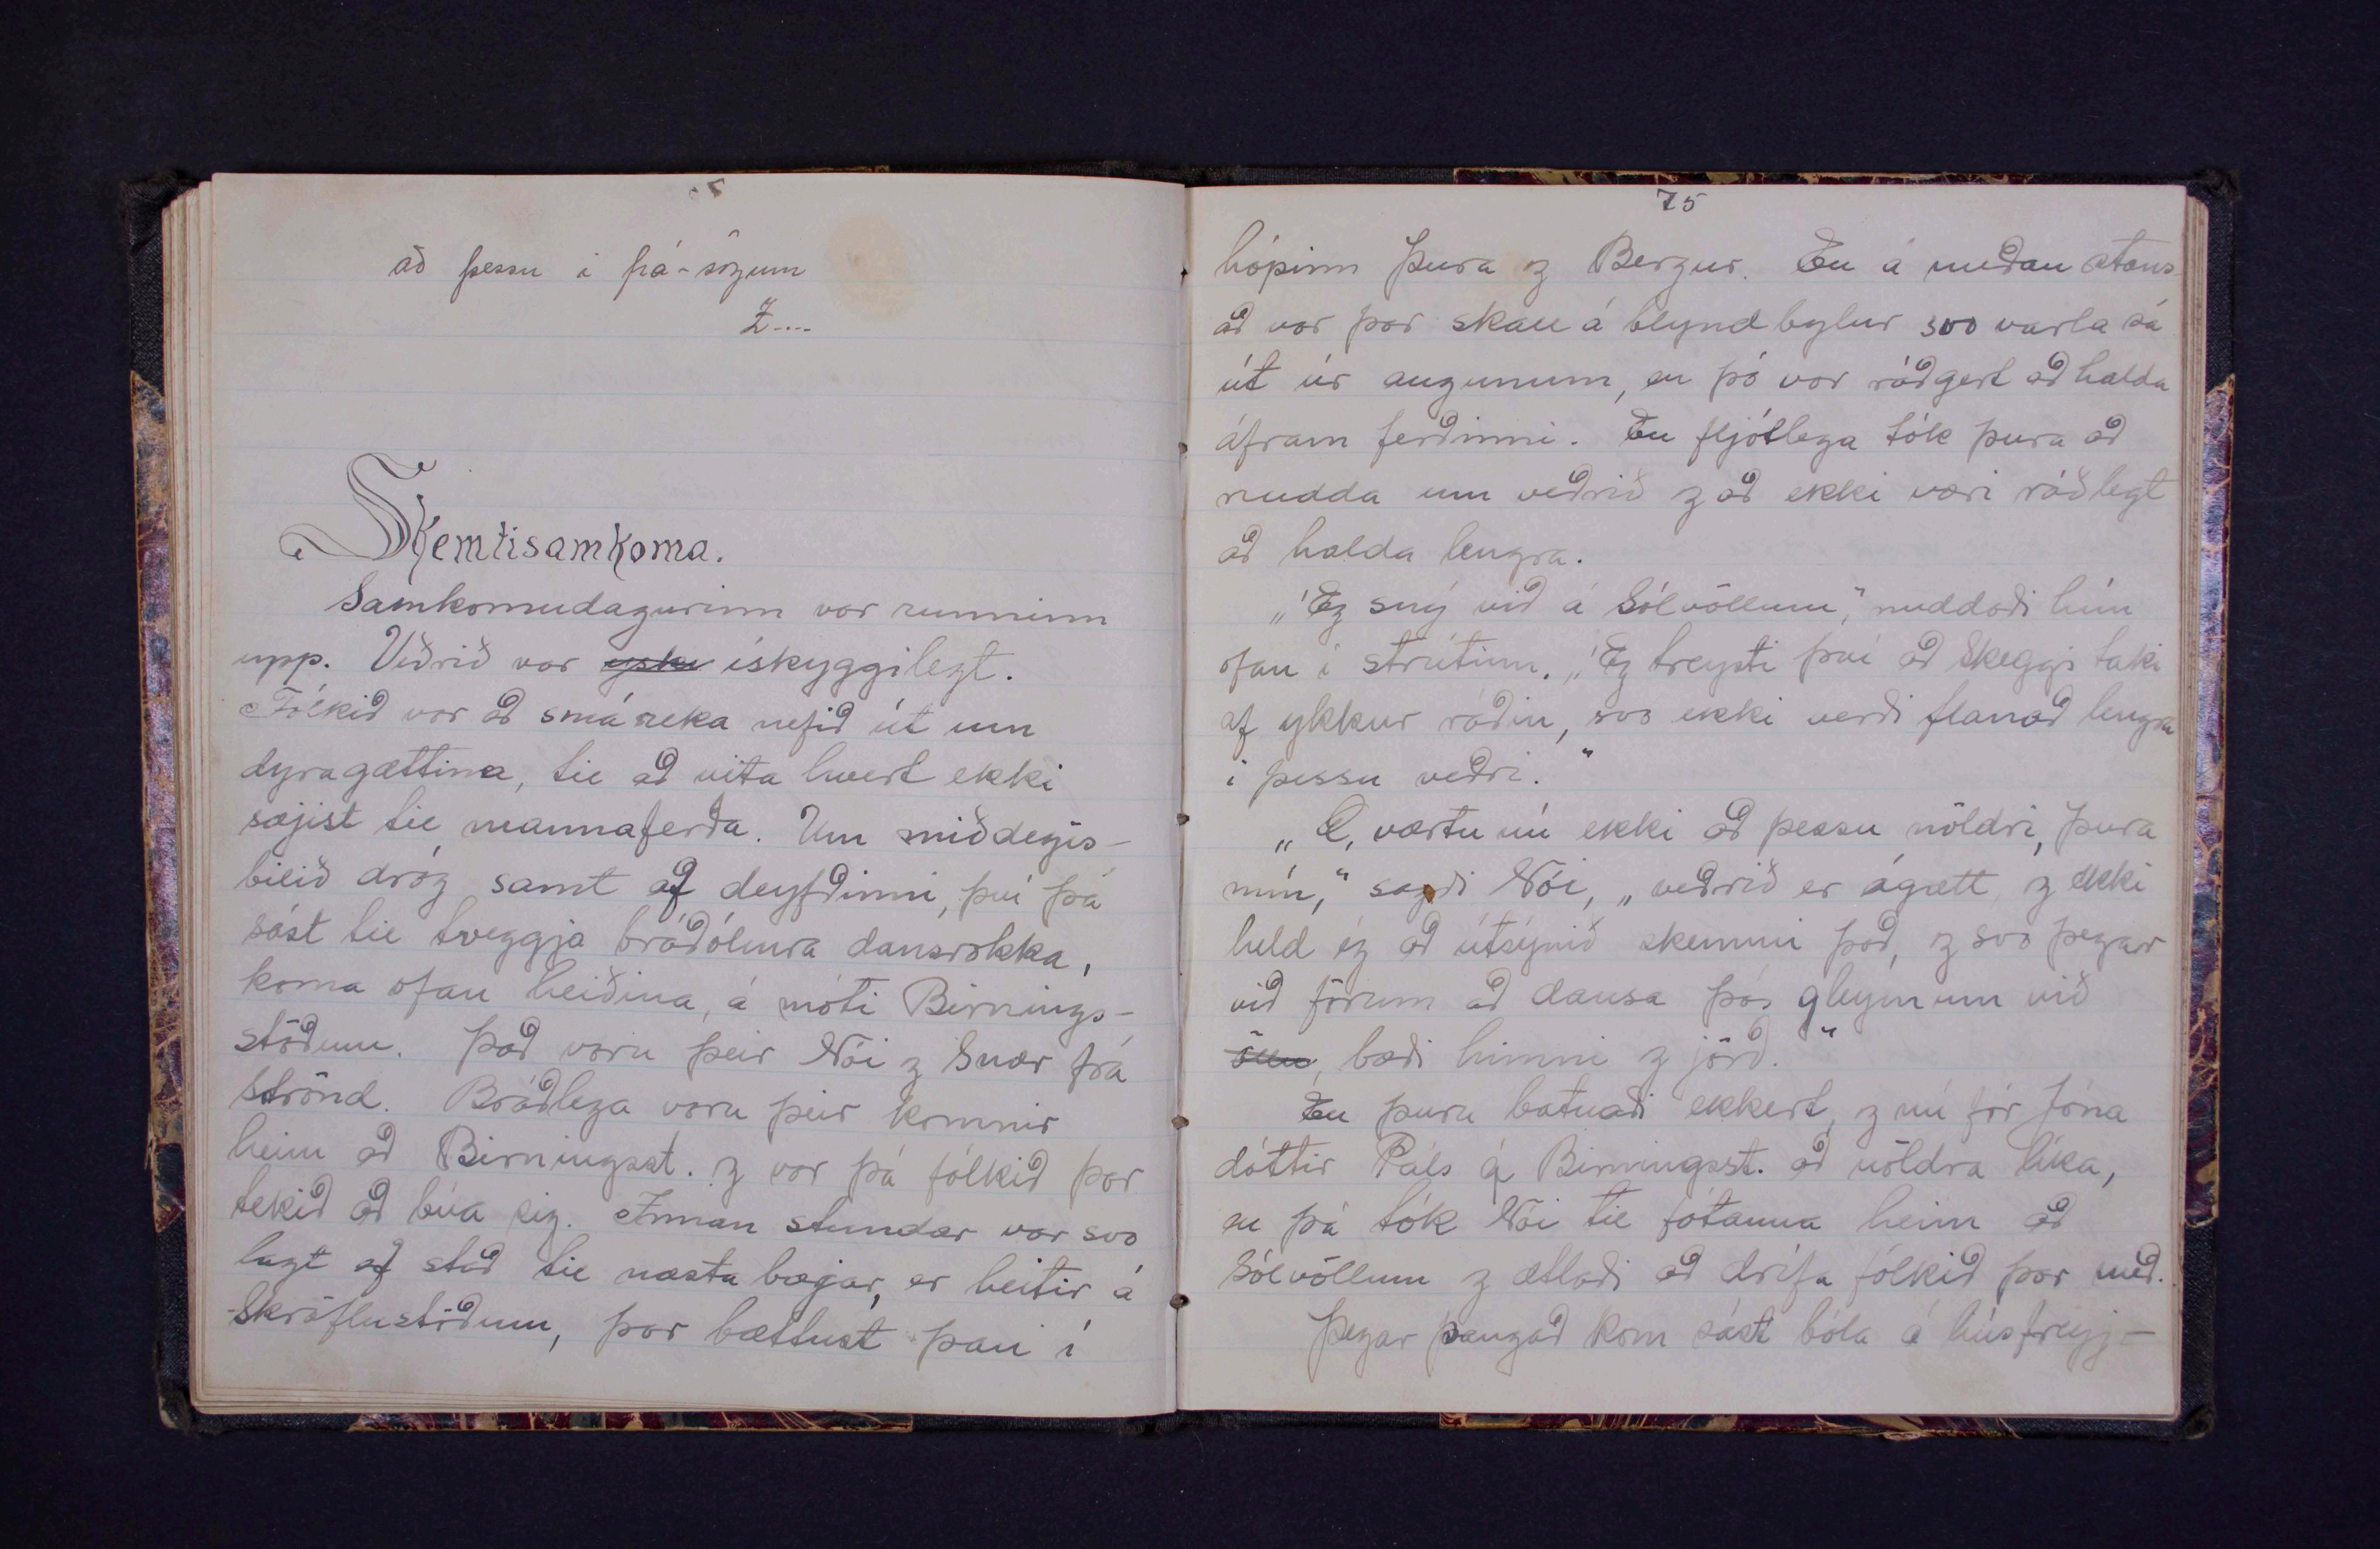 að þessu i frá-sögum
Z....
Skemtisamkoma.
Samkomudagurinn var runninn
upp. Viðrið var ískyggilegt.
Fólkið var að smá reka nefið út um
dyragættina, til að vita hvert ekki
sæjist til mannaferða. Um miðdegis-
bilið dróg samt af deyfðinni, því þá
sást til tveggja bráðólmra dansrokka,
koma ofan heiðina, á móti Birnings-
stöðum. Það voru þeir Nói og Snær frá
Strönd. Bráðlega voru þeir komnir
heim að Birningsst. og var þá fólkið þar
tekið að búa sig. Innan stundar var svo
lagt af stað til næsta bæjar, er heitir á
Skröflustöðum, þar bættust þau í
75
hópinn Þura og Bergur. En á meðan stans
að var þar skall á blyndbylur svo varla sá
út úr augunum, en þó var ráðgert að halda
áfram ferðinni. En fljótlega tók Þura að
nudda um veðrið og að ekki væri ráðlegt
að halda lengra.
„Eg sný við á Sólvöllum", nuddaði hún
ofan í strútinn. „Eg treysti því að Skeggi taki
af ykkur ráðin, svo ekki verði flanað lengra
í þessu veðri."
„O, vertu nú ekki að þessu nöldri, Þura
mín," sagði Nói, „veðrið er ágætt og ekki
held ég að útsýnið skemmi það, og svo þegar
við förum að dansa þá gleymum við
öllu, bæði himni og jörð."
En Þuru batnaði ekkert, og nú fór Jóna
dóttir Páls á Birningsst. að nöldra líka,
en þá tók Nói til fótanna heim að
Sólvöllum og ætlaði að drífa fólkið þar með.
Þegar þangað kom sást bóla á húsfreyj-